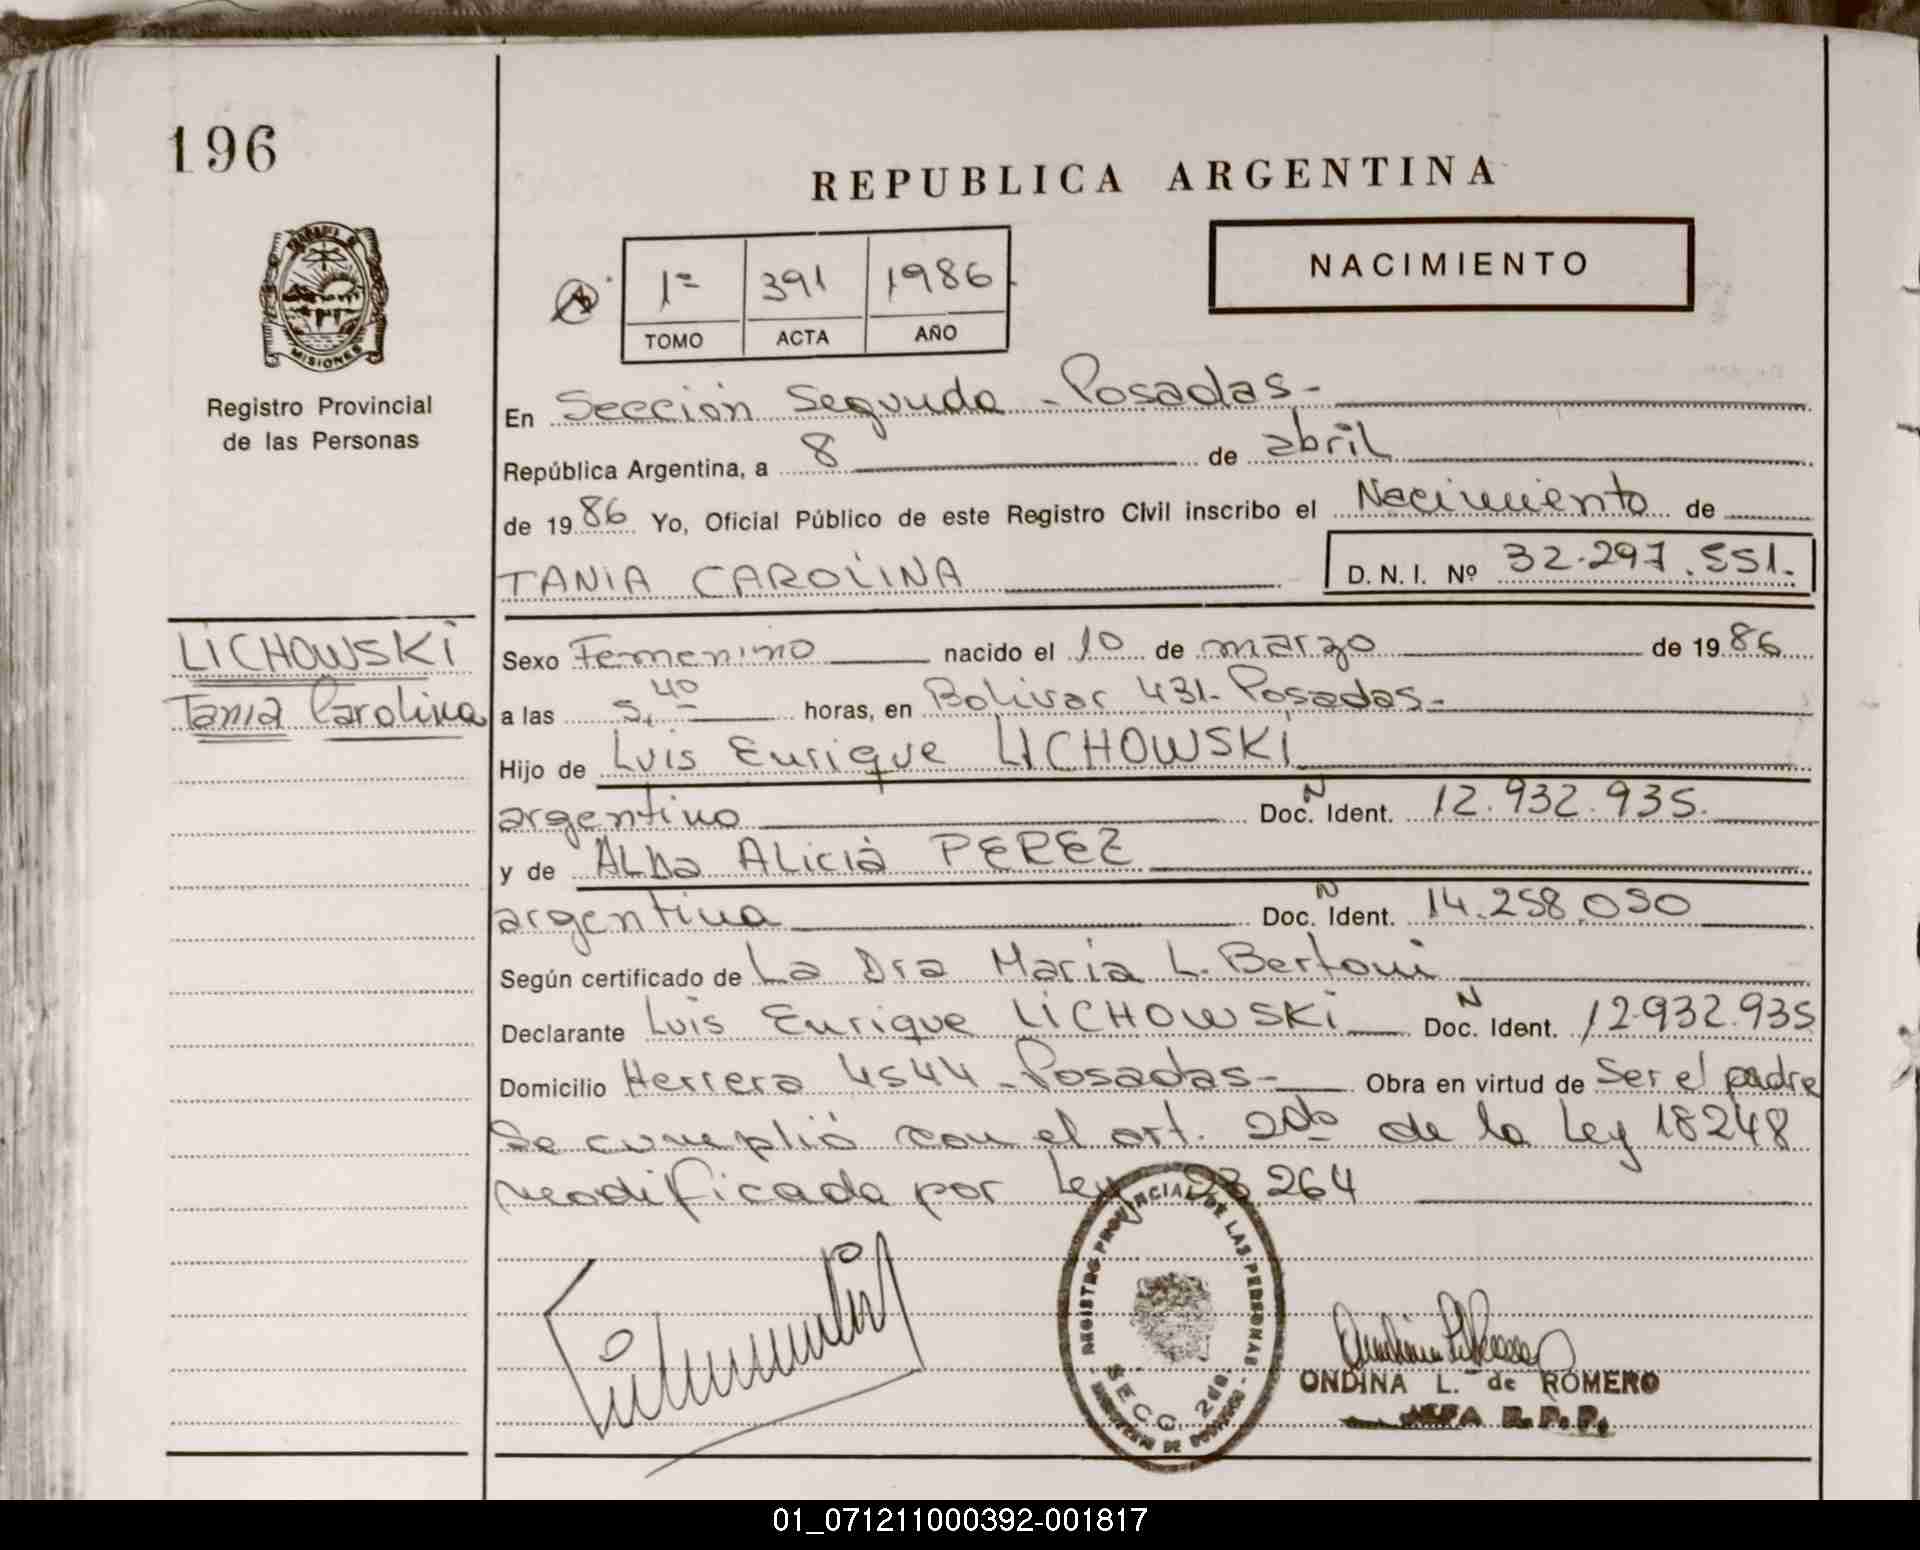 196
REPUBLICA ARGENTINA
NACIMIENTO
1º 391 1986
TOMO ACTA AÑO
MISIONES
Registro Provincial
de las Personas
En Sección Segunda - Posadas -
República Argentina, a 8 de abril
de 1986 Yo, Oficial Público de este Registro Civil inscribo el Nacimiento de
TANIA CAROLINA D.N.I. Nº 32.297.551.
LICHOWSKI
Tania Carolina
Sexo Femenino nacido el 10 de marzo de 1986
a las 5,40 horas, en Bolivar 431 - Posadas -
Hijo de Luis Enrique LICHOWSKI
argentino Doc. N Ident. 12.932.935.
y de ALBA ALICIA PEREZ
argentina Doc. N Ident. 14.258.050
Según certificado de La Dra Maria L. Bertoni
Declarante Luis Enrique LICHOWSKI Doc. N Ident. 12.932.935
Domicilio Herrera 4544 - Posadas - Obra en virtud de Ser el padre
Se cumplió con el art. 2do de la Ley 18248
modificada por Ley 23264
REGISTRO PROVINCIAL DE LAS PERSONAS
SECC. 2da.
ONDINA L. de ROMERO
JEFA R.P.P.
01_071211000392-001817